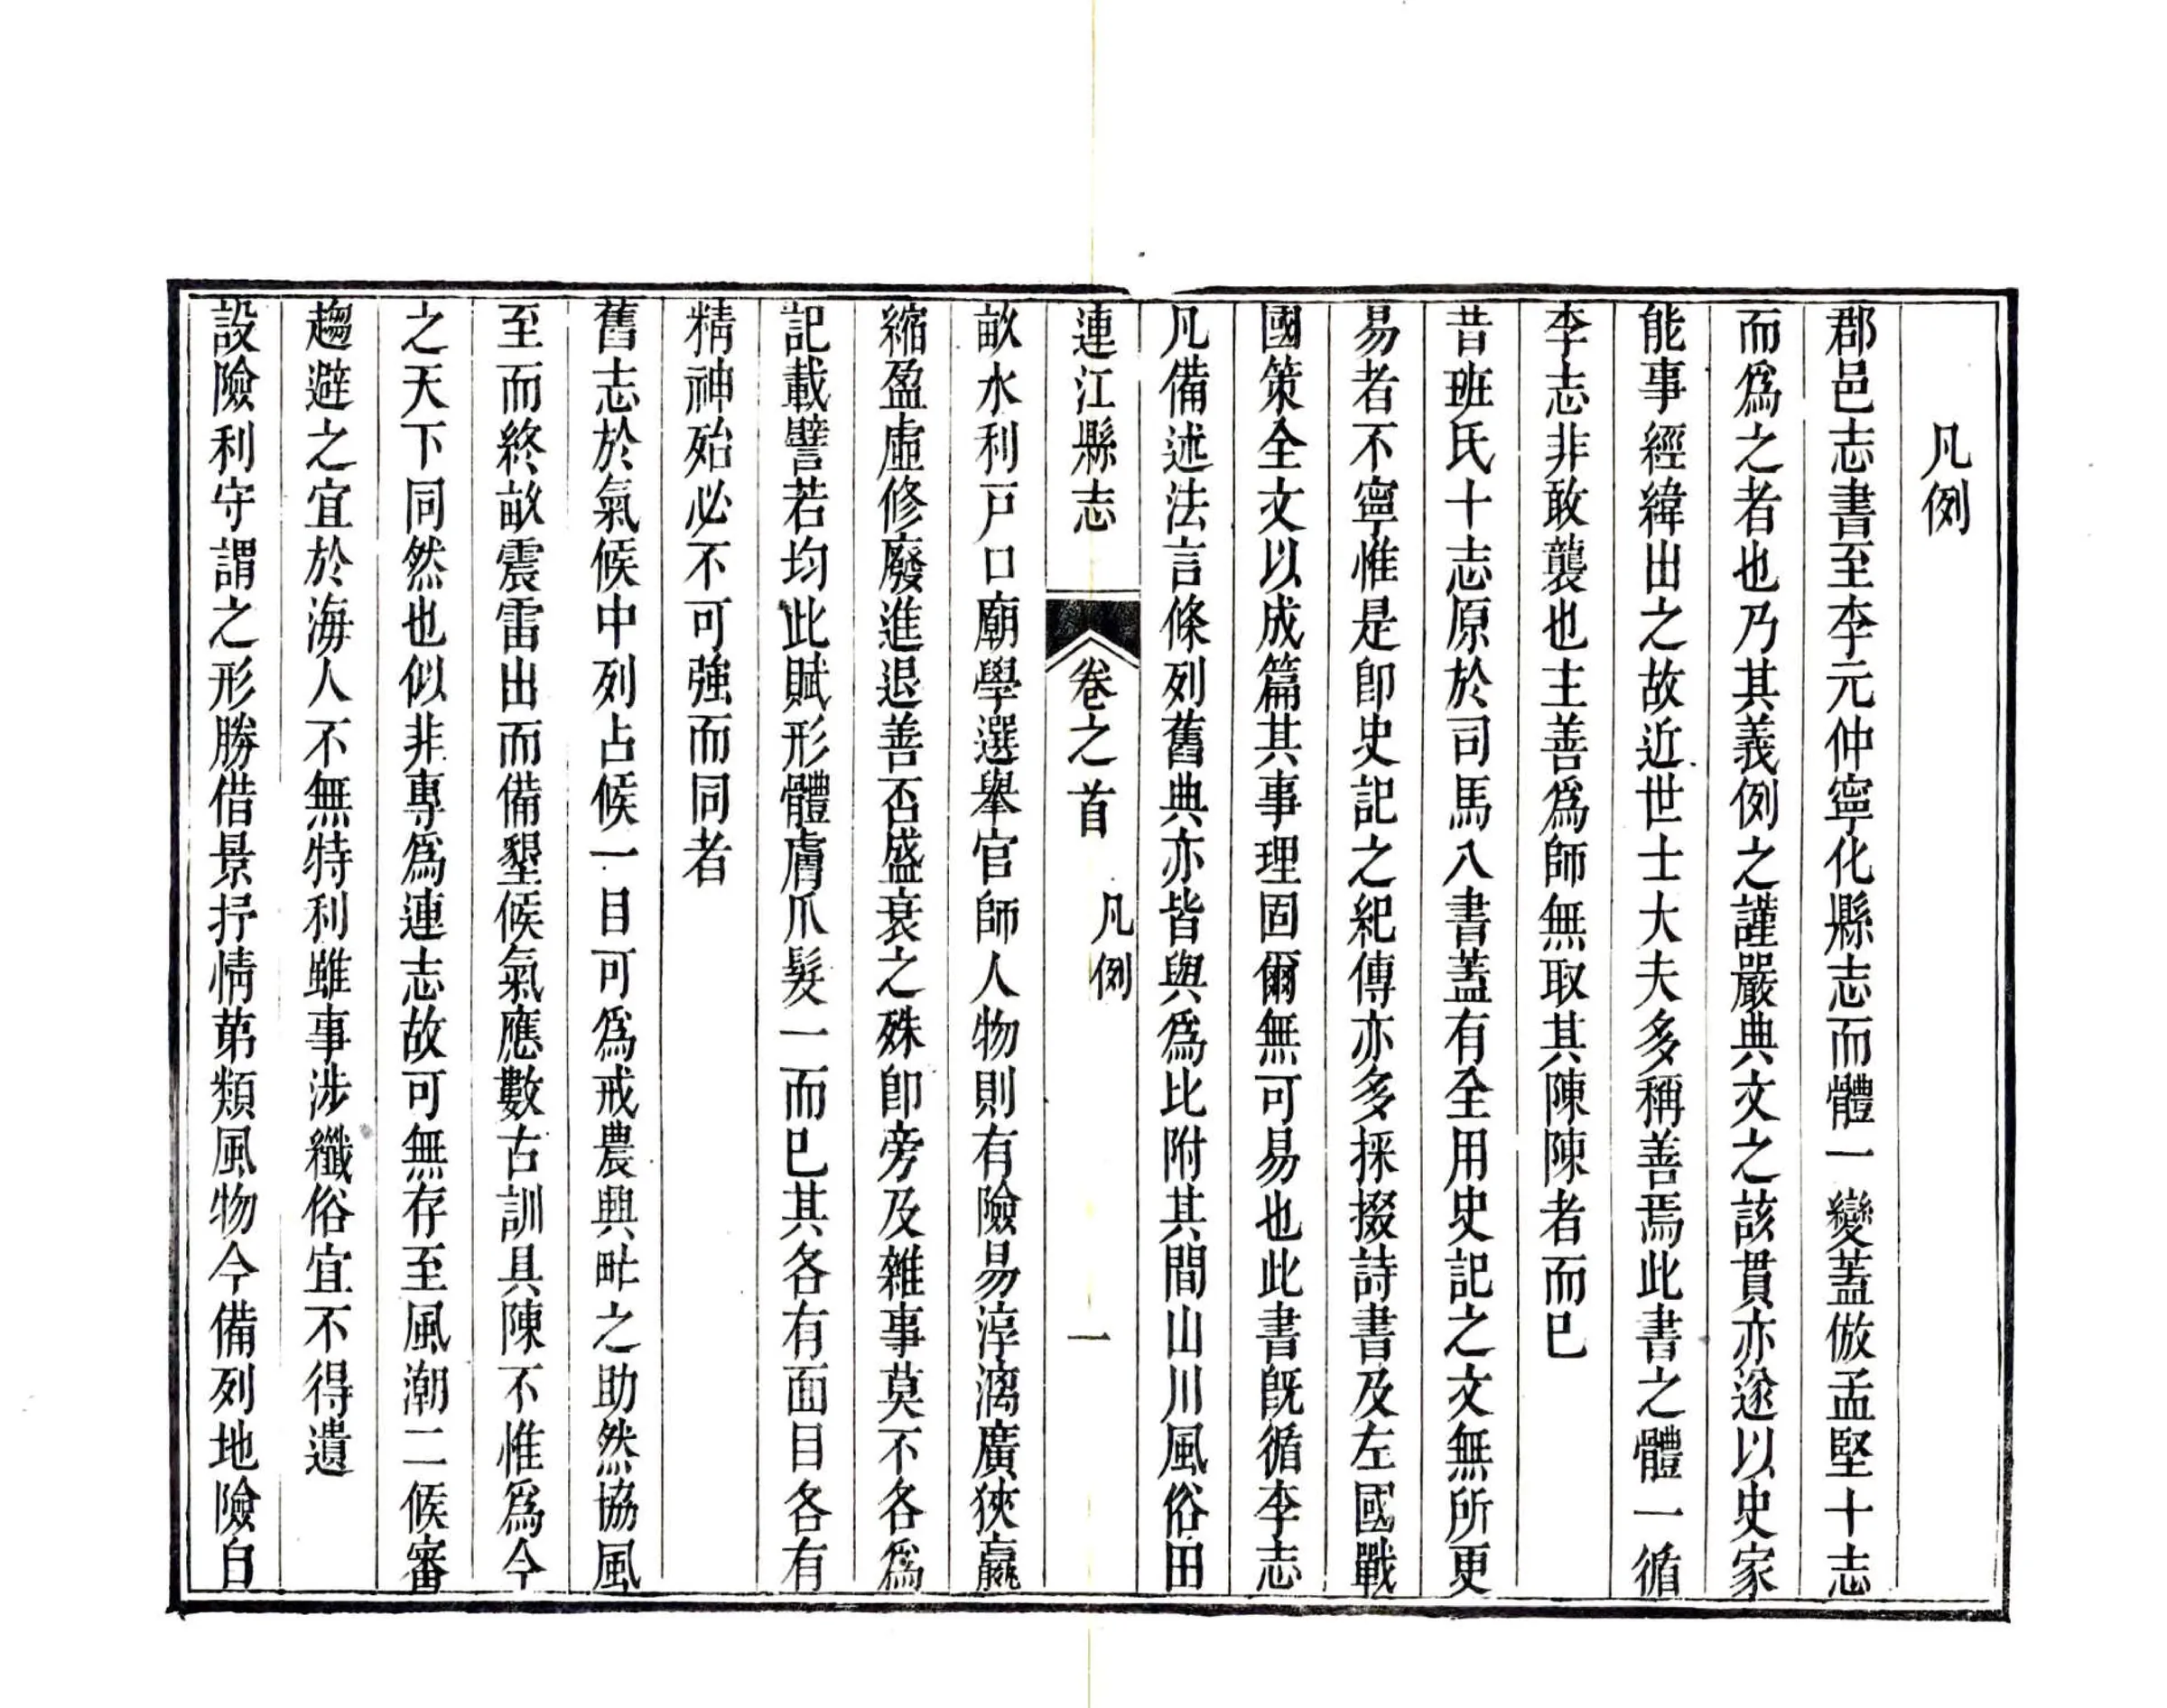 凡例
郡邑志書至李元仲寧化縣志而體一變蓋倣孟堅十志
而爲之者也乃其義例之謹嚴典文之該貫亦遂以史家
能事經緯出之故近世士大夫多稱善焉此書之體一循
李志非敢襲也主善爲師無取其陳陳者而已
昔班氏十志原於司馬八書蓋有全用史記之文無所更
易者不寧惟是卽史記之紀傳亦多採掇詩書及左國戰
國策全文以成篇其事理固爾無可易也此書旣循李志
凡備述法言條列舊典亦皆與爲比附其間山川風俗田
連江縣志 卷之首 凡例 一
畝水利戸口廟學選舉官師人物則有險易淳漓廣狹羸
縮盈虛修廢進退善否盛衰之殊卽旁及雜事莫不各爲
記載譬若均此賦形體膚爪髮一而已其各有面目各有
精神殆必不可強而同者
舊志於氣候中列占候一目可爲戒農興甿之助然協風
至而終畝震雷出而備墾候氣應數古訓具陳不惟爲今
之天下同然也似非專爲連志故可無存至風潮二候審
趨避之宜於海人不無特利雖事涉纖俗宜不得遺
設險利守謂之形勝借景抒情苐類風物今備列地險自